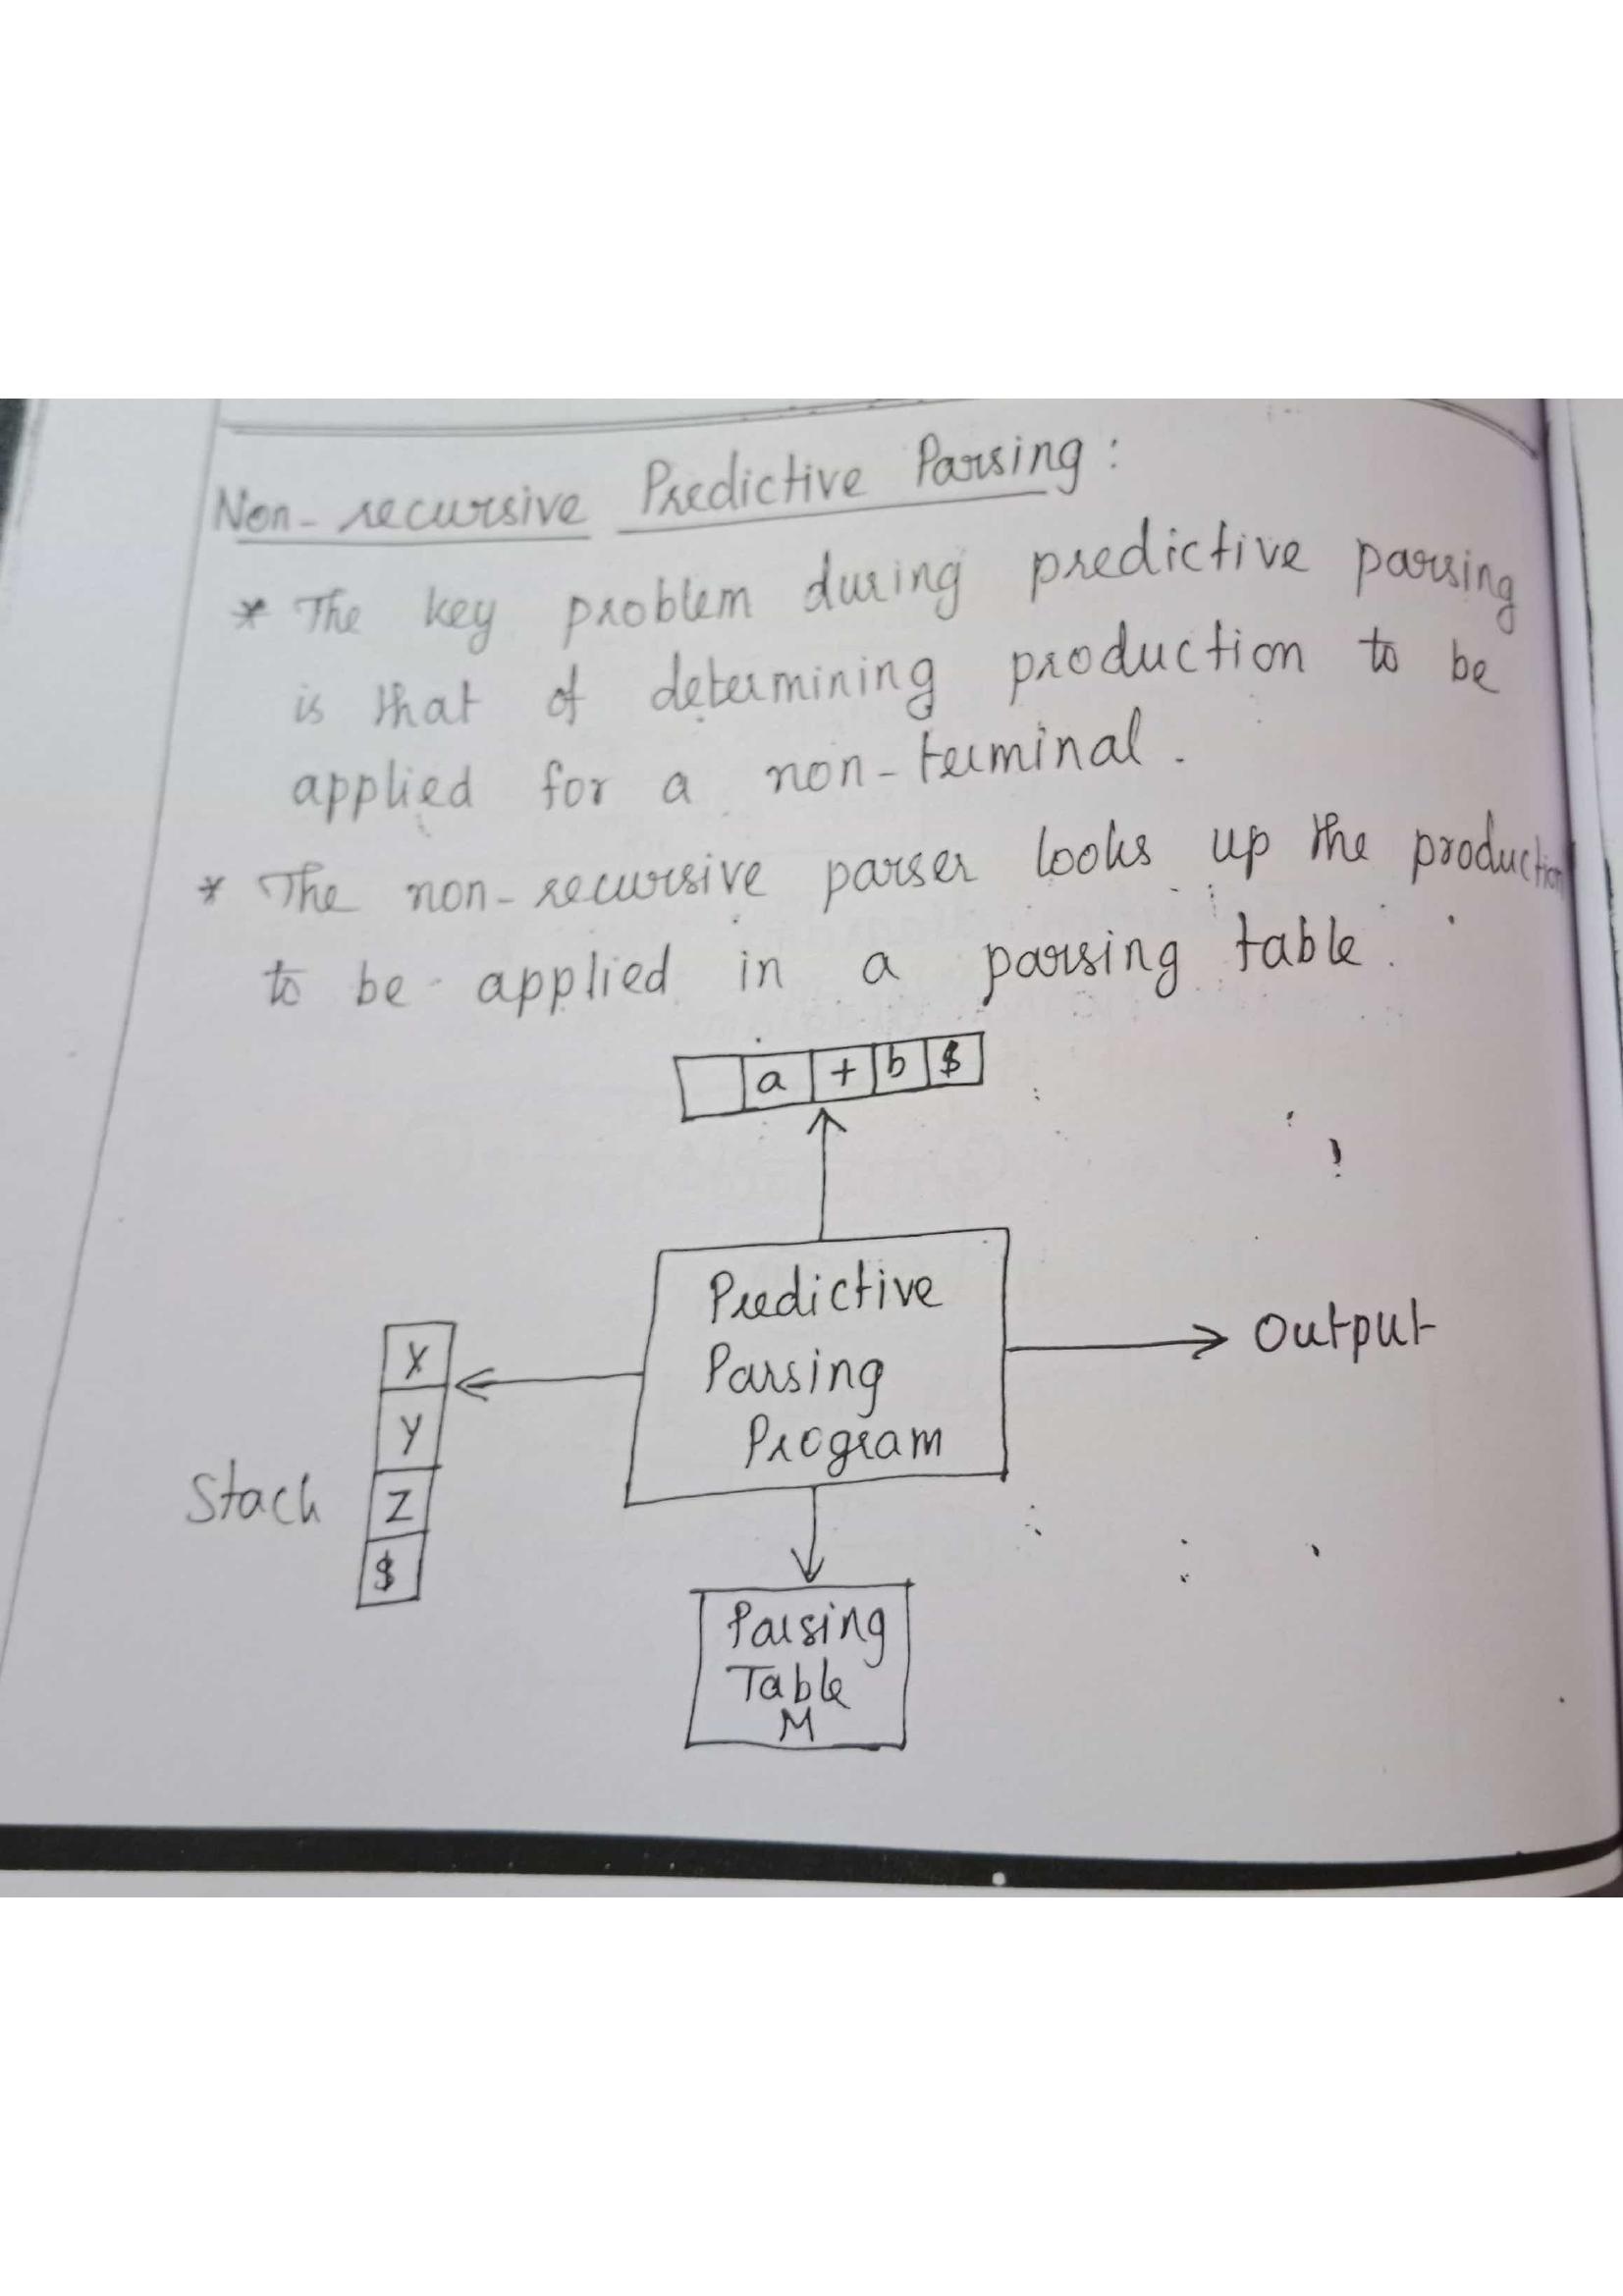 Non-recursive Predictive Parsing:
* The key problem during predictive parsing
is that of determining production to be
applied for a non-terminal.
* The non-recursive parser looks up the production
to be applied in a parsing table.
a + b $
Predictive
Parsing
Program
Output
X
Y
Z
$
Stack
Parsing
Table
M